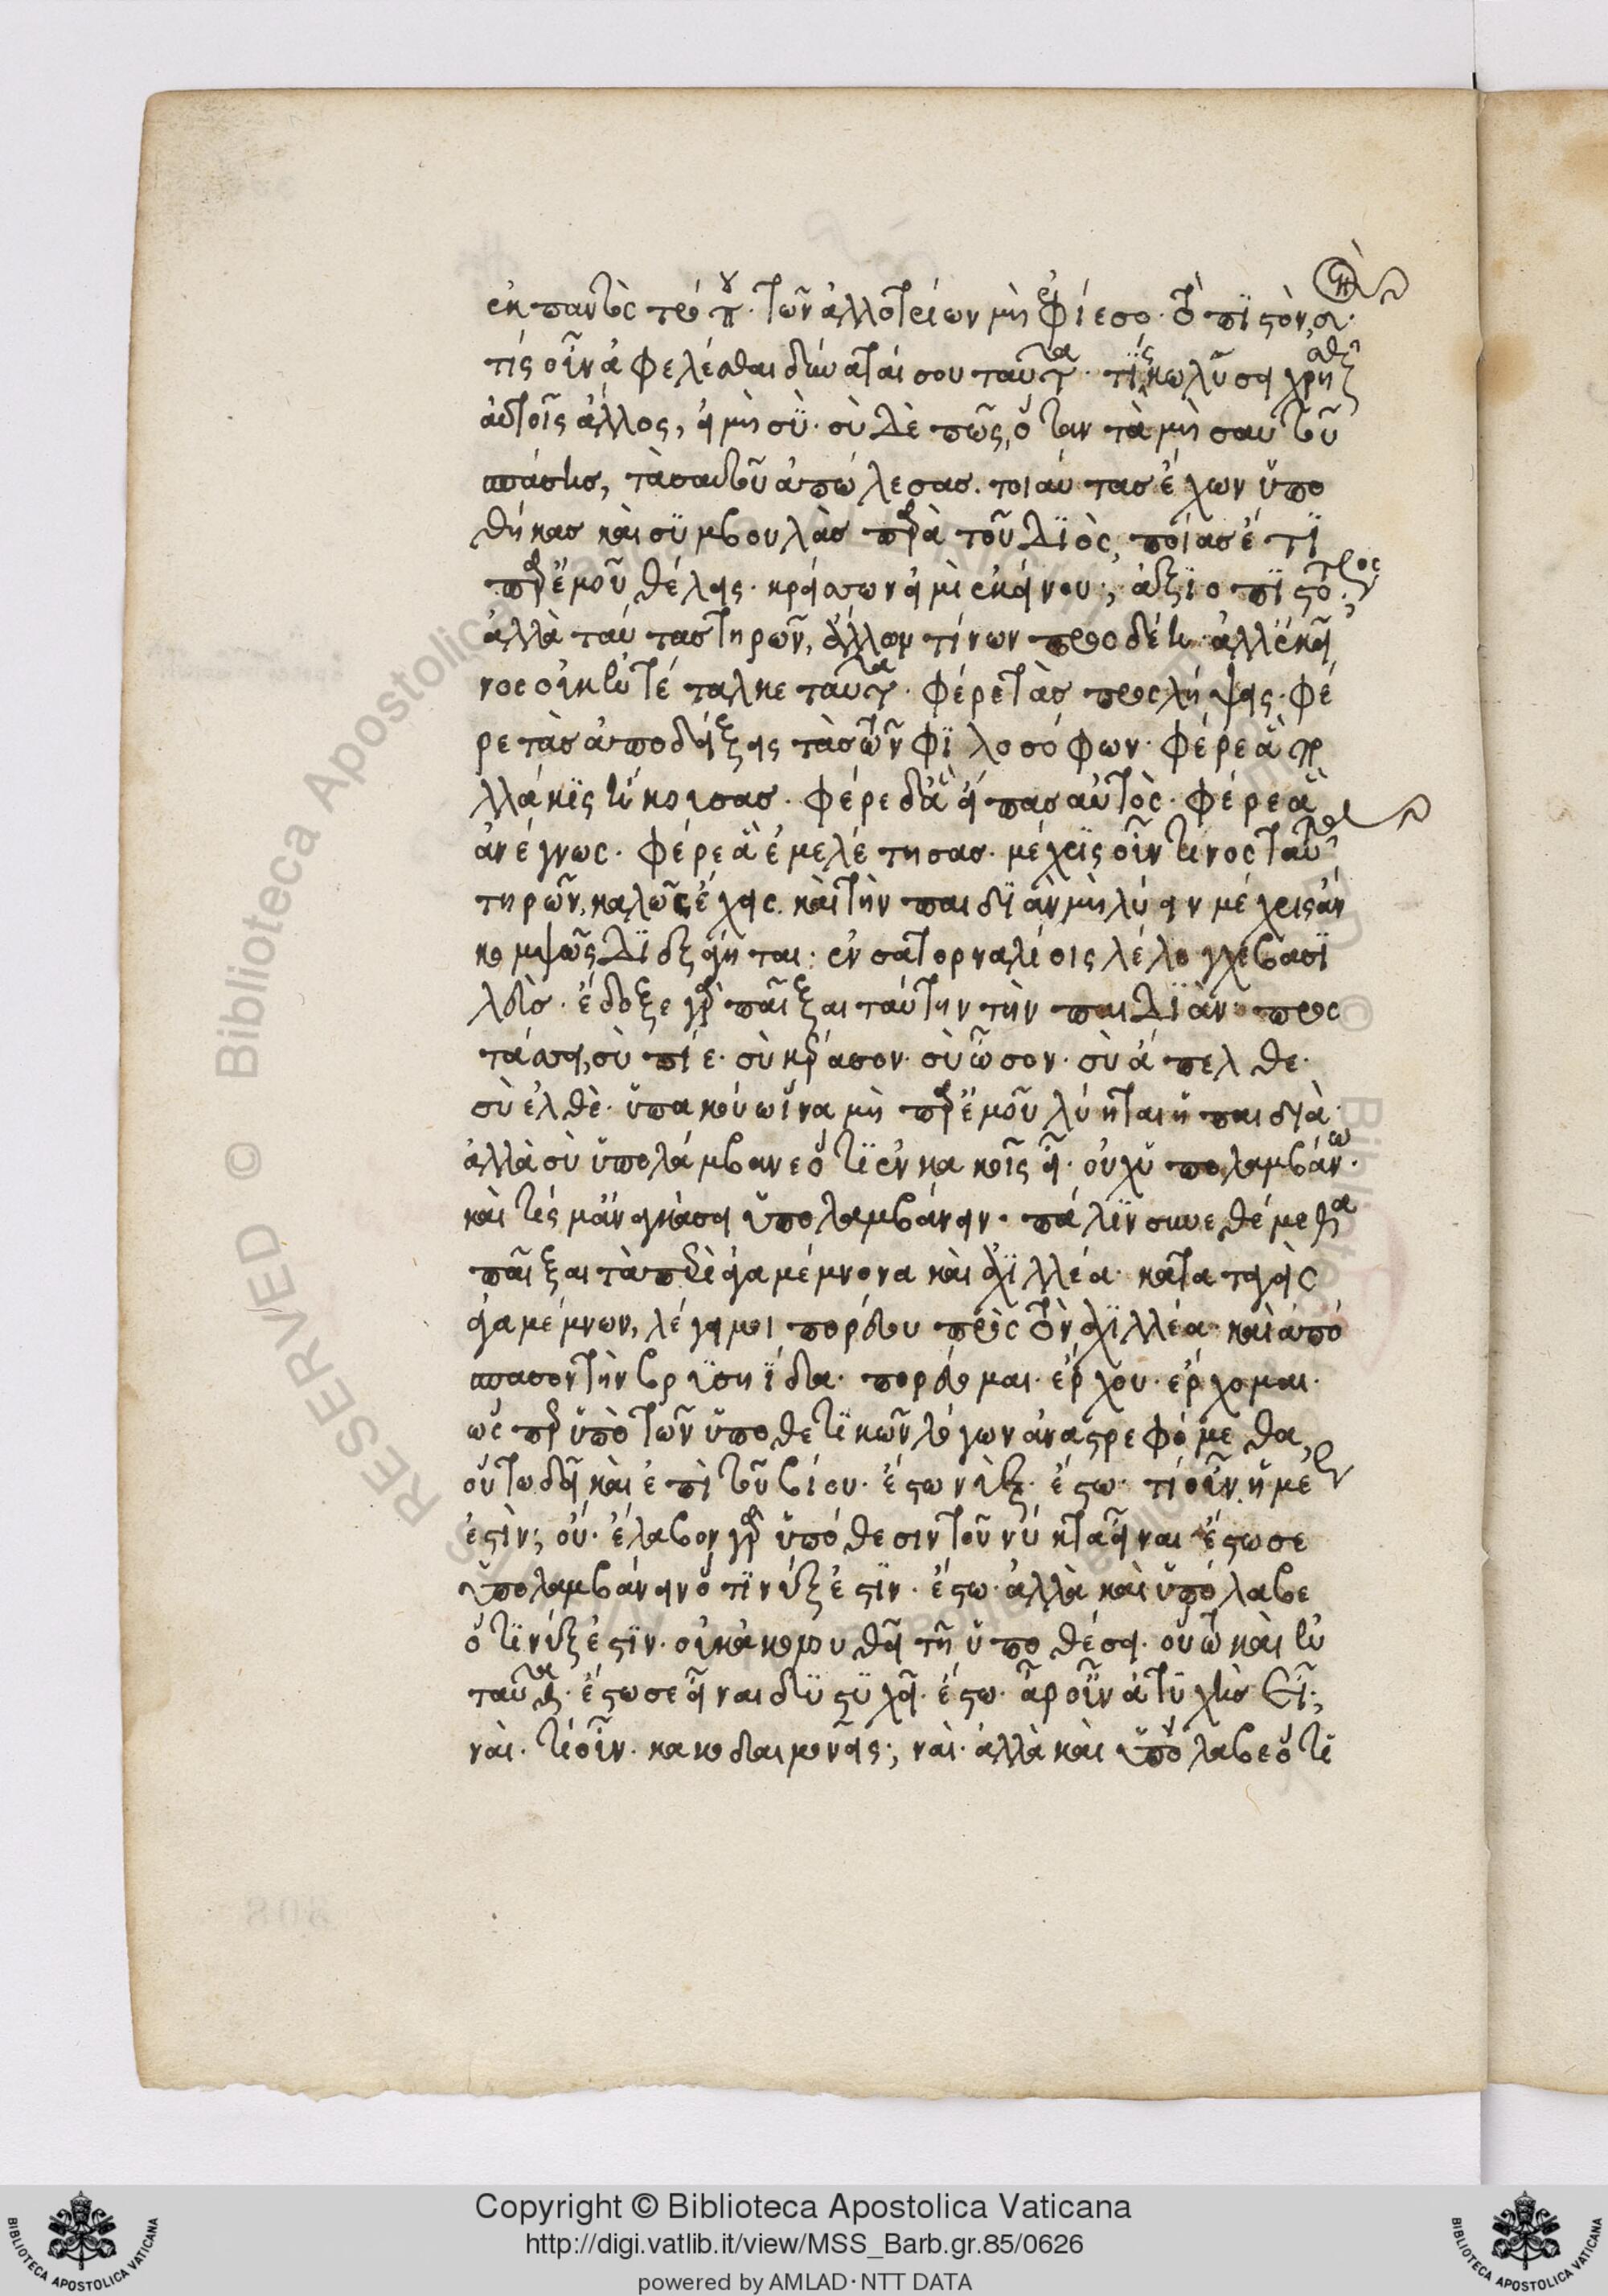 ἐκ παντὸς τρόπου· τῶν ἀλλοτρίων μὴ ἐφίεσο· τὸ πιστὸν, σὸν·
τίς οὖν ἀφελέσθαι δύναταί σου ταῦτα· τίς κωλῦσει χρῆσθαι
αὐτοῖς ἄλλος, εἰ μὴ σὺ· σὺ δὲ πῶς, ὅταν τὰ μὴ σαυτοῦ
σπάσης, τὰ σαυτοῦ ἀπώλεσας. τοιαύτας ἔχων ὑπο
θήκας καὶ συμβουλὰς παρὰ τοῦ Διὸς, ποίας ἔτι
παρ' ἐμοῦ θέλεις· κρείσσων εἰμὶ ἐκείνου; ἀξιοπιστότερος;
ἀλλὰ ταύτας τηρῶν, ἄλλων τίνων προσδέη· ἀλλ' ἐκεῖ
νος οὐκ ἐντέταλκε ταῦτα· φέρε τὰς προσλήψεις· φέ
ρε τὰς ἀποδείξεις τὰς τῶν φιλοσόφων· φέρε ἃ πο
λλάκις ἤκουσας· φέρε δ' ἃ εἶπας αὐτὸς· φέρε ἃ
ἀνέγνως· φέρε ἃ ἐμελέτησας· μέχρις οὖν τίνος ταῦτα
τηρῶν, καλῶς ἔχεις. καὶ τὴν παιδιὰν μὴ λύειν μέχρις ἂν
κομψῶς διεξάγηται: ἐν σατορναλίοις λέλογχε βασι
λεὺς· ἔδοξε γὰρ παῖξαι ταύτην τὴν παιδιὰν· προς
τάσσει, σὺ πίε· σὺ κέρασον· σὺ ᾆσον· σὺ ἄπελθε·
σὺ ἐλθὲ· ὑπακούω ἵνα μὴ παρ' ἐμοῦ λύηται ἡ παιδιὰ·
ἀλλὰ σὺ ὑπολάμβανε ὅτι ἐν κακοῖς εἶ· οὐχ ὑπολαμβάνω·
καὶ τίς μ' ἀναγκάσει ὑπολαμβάνειν· πάλιν συνεθέμεθα
παῖξαι τὰ περὶ ἀγαμέμνονα καὶ ἀχιλλέα· καταταγεὶς
ἀγαμέμνων, λέγει μοι πορεύου πρὸς τὸν ἀχιλλέα· καὶ ἀπό
σπασον τὴν βρισηΐδα· πορεύομαι· ἔρχου· ἔρχομαι·
ὡς γὰρ ὑπὸ τῶν ὑποθετικῶν λόγων ἀναστρεφόμεθα,
οὕτω δεῖ καὶ ἐπὶ τοῦ βίου· ἔστω νὺξ· ἔστω· τί οὖν ἡμέρα
ἐστὶν; οὔ· ἔλαβον γὰρ ὑπόθεσιν τοῦ νύκτα εἶναι· ἔστω σε
ὑπολαμβάνειν ὅτι νὺξ ἐστὶν· ἔστω· ἀλλὰ καὶ ὑπόλαβε
ὅτι νὺξ ἐστὶν· οὐκ ἀκολουθεῖ τῆ ὑποθέσει· οὕτω καὶ ἐν
ταῦθα· ἔστω σε εἶναι δυστυχῆ· ἔστω· ἆρ' οὖν ἀτυχὴς εἶ;
ναὶ· τί οὖν· κακοδαιμονεῖς; ναὶ· ἀλλὰ καὶ ὑπόλαβε ὅτι